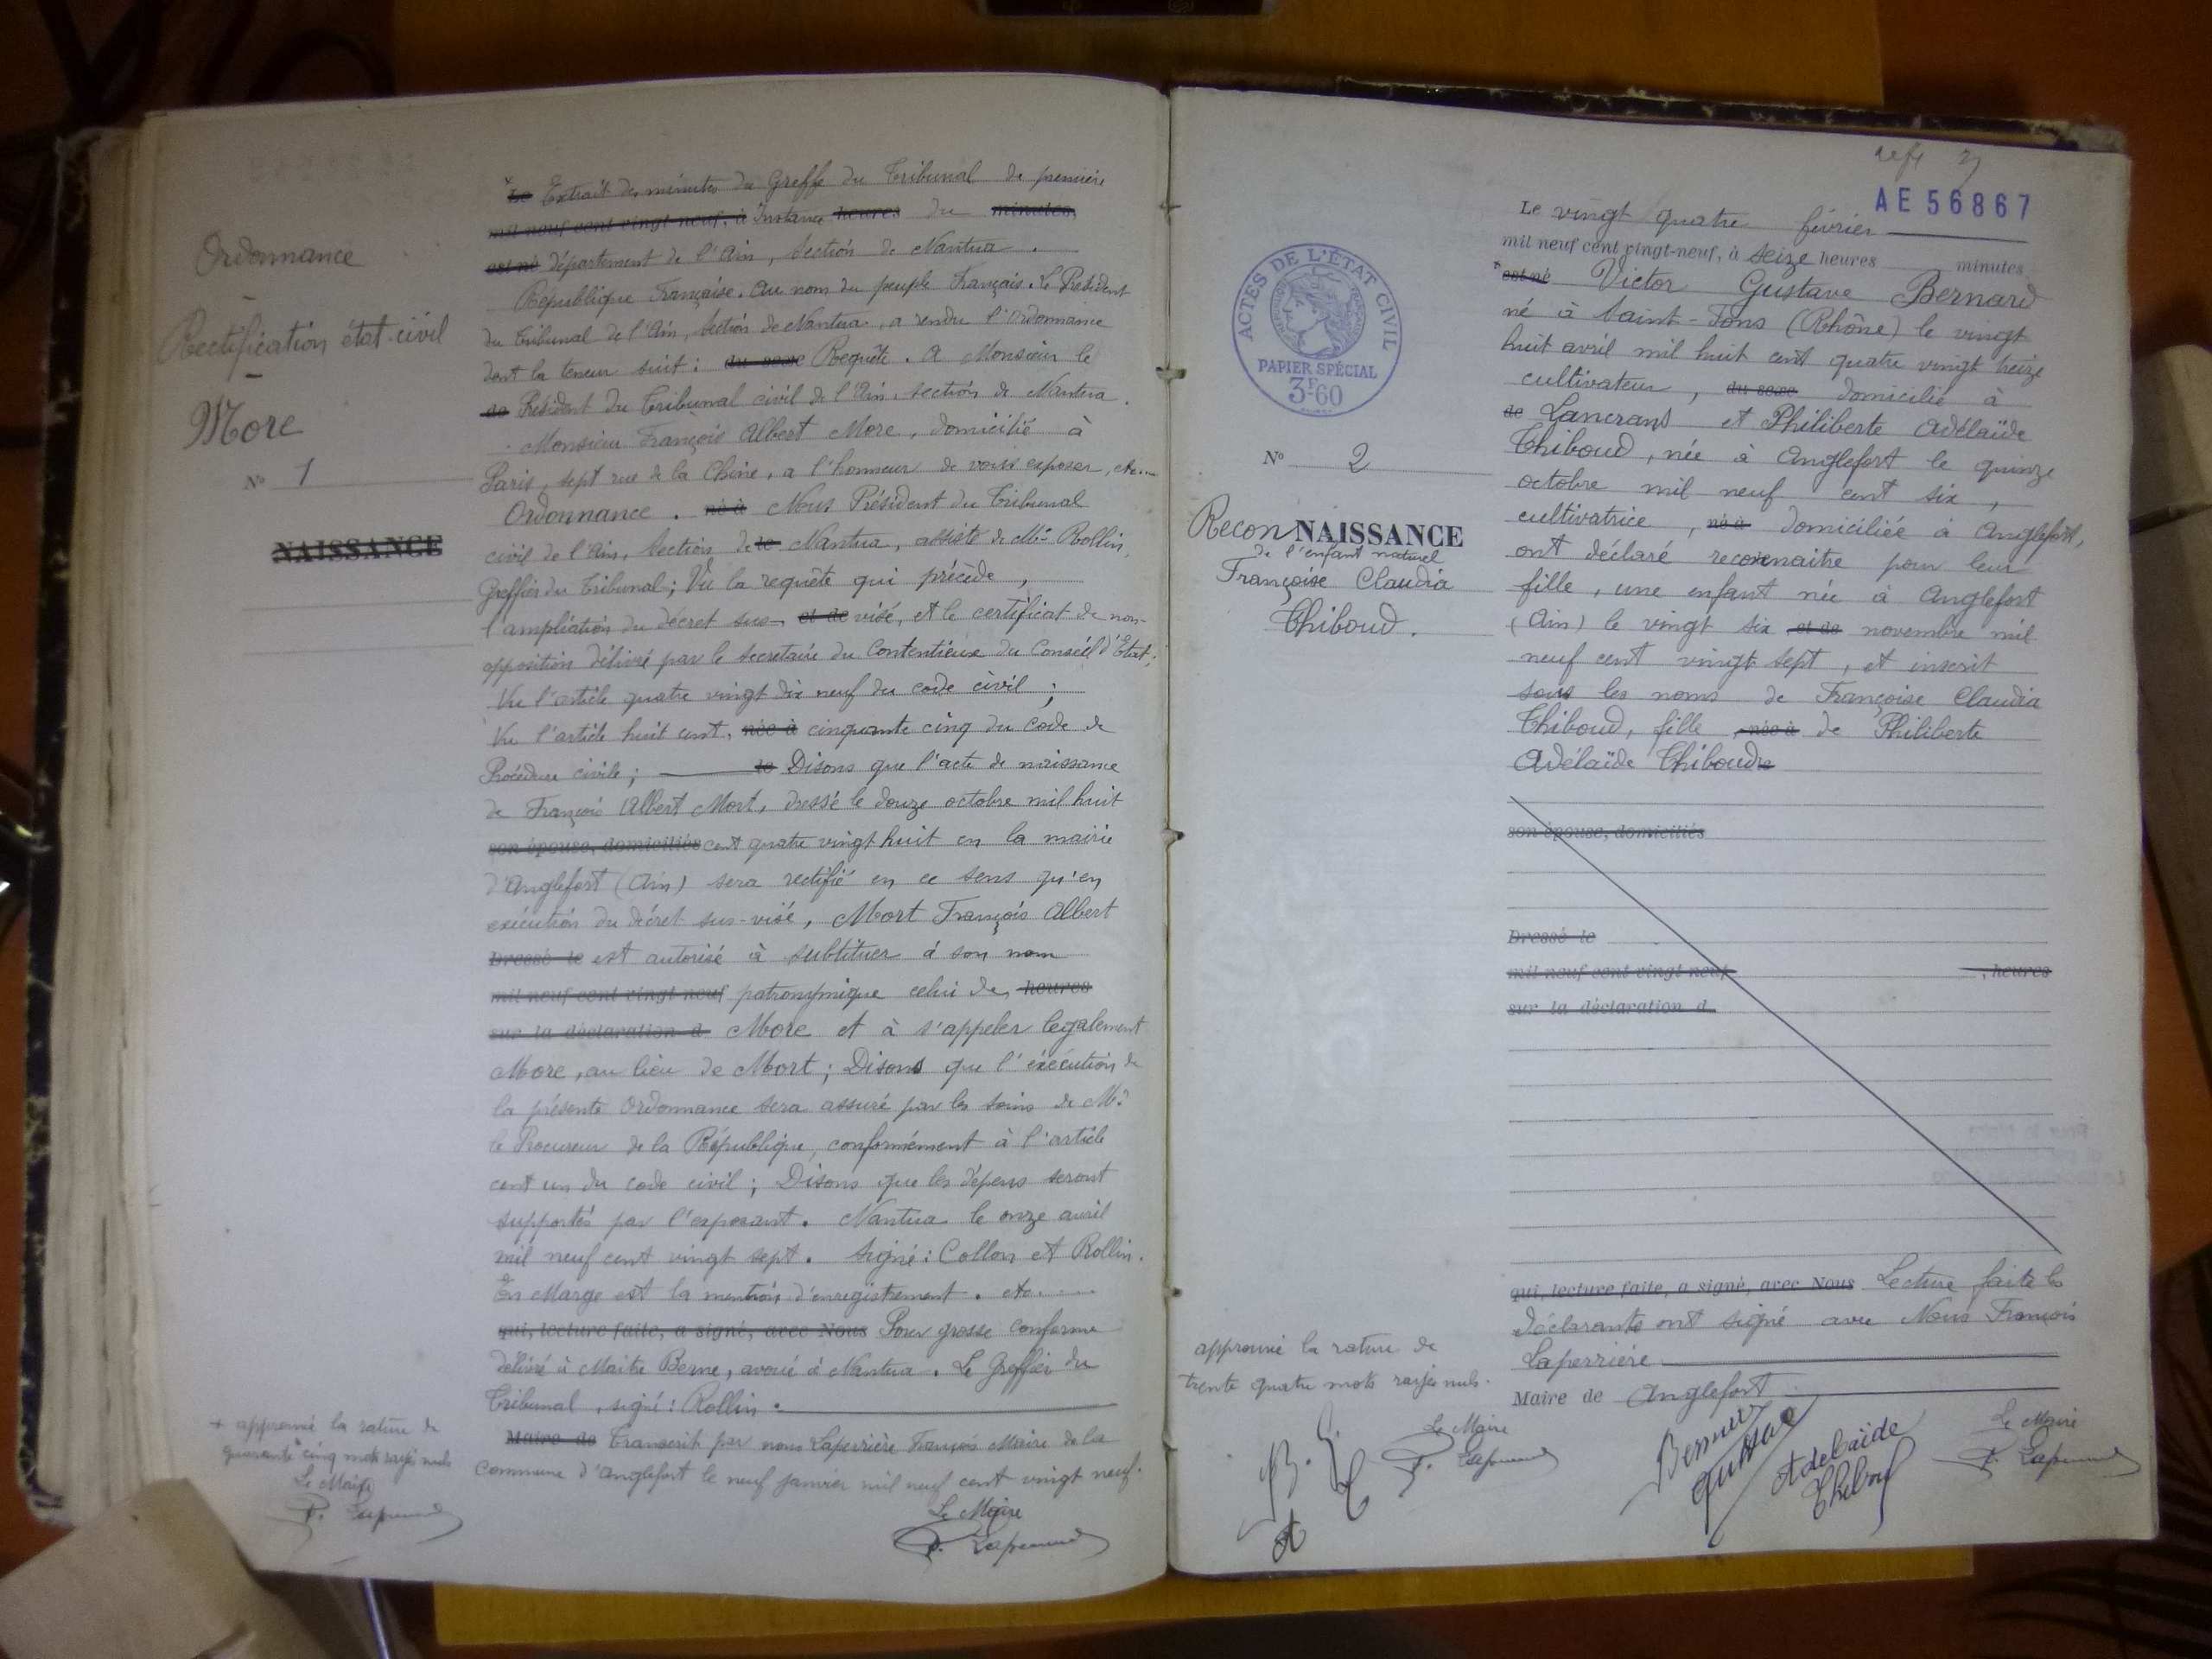 Ordonnance
Rectification état-civil
More
N° 1
NAISSANCE
Le Extrait des minutes du Greffe du Tribunal de première
mil neuf cent vingt-neuf, à Instance heures du minutes,
est né département de l'Ain, Section de Nantua.
République Française. Au nom du peuple Français. Le Président
du Tribunal de l'Ain, Section de Nantua, a rendu l'Ordonnance
dont la teneur suit : du sexe Requête. A Monsieur le
de Président du Tribunal civil de l'Ain, section de Nantua.
Monsieur François Albert More, domicilié à
Paris, sept rue de la Chine, a l'honneur de vous exposer, etc...
Ordonnance. né à Nous Président du Tribunal
civil de l'Ain, Section de le Nantua, assisté de Me Rollin,
Greffier du Tribunal ; Vu la requête qui précède,
l'ampliation du décret sus- et de visé, et le certificat de non-
opposition délivré par le Secrétaire du Contentieux du Conseil d'Etat ;
Vu l'article quatre vingt dix neuf du code civil ;
Vu l'article huit cent, née à cinquante cinq du Code de
Procédure civile ; le Disons que l'acte de naissance
de François Albert Mort, dressé le douze octobre mil huit
son épouse, domiciliés cent quatre vingt huit en la mairie
d'Anglefort (Ain) sera rectifié en ce sens qu'en
exécution du décret sus-visé, Mort François Albert
Dressé le est autorisé à subtituer à son nom
mil neuf cent vingt-neuf patronymique celui de heures
sur la déclaration d More et à s'appeler legalement
More, au lieu de Mort ; Disons que l'exécution de
la présente Ordonnance sera assuré par les soins de Mr
le Procureur de la République, conformément à l'article
cent un du code civil ; Disons que les dépens seront
supportés par l'exposant. Nantua le onze avril
mil neuf cent vingt sept. Signé : Collon et Rollin.
En Marge est la mention d'enregistrement. etc....
qui, lecture faite, a signé, avec Nous Pour grosse conforme
délivré à Maitre Berne, avoué à Nantua. Le Greffier du
Tribunal, signé : Rollin.
Maire de Transcrit par nous Laperrière François Maire de la
commune d'Anglefort le neuf janvier mil neuf cent vingt neuf.
Le Maire
F. Laperrière
+ approuvé la rature de
quarante cinq mots rayés nuls
Le Maire
F. Laperrière
AE 56867
ACTES DE L'ÉTAT CIVIL
RÉPUBLIQUE FRANÇAISE
PAPIER SPÉCIAL
3F60
N° 2
Recon NAISSANCE
de l'enfant naturel
Françoise Claudia
Thiboud.
Le vingt quatre février
mil neuf cent vingt-neuf, à seize heures minutes
est né Victor Gustave Bernard
né à Saint-Fons (Rhône) le vingt
huit avril mil huit cent quatre vingt treize
cultivateur, du sexe domicilié à
de Lancrans et Philiberte Adélaïde
Thiboud, née à Anglefort le quinze
octobre mil neuf cent six,
cultivatrice, né à domiciliée à Anglefort,
ont déclaré reconnaitre pour leur
fille, une enfant née à Anglefort
(Ain) le vingt six et de novembre mil
neuf cent vingt sept, et inscrit
sous les noms de Françoise Claudia
Thiboud, fille née à de Philiberte
Adélaïde Thiboud le
son épouse, domiciliés
Dressé le
mil neuf cent vingt-neuf , heures
sur la déclaration d
qui, lecture faite, a signé, avec Nous Lecture faite les
déclarants ont signé avec Nous François
Laperrière
Maire de Anglefort
approuvé la rature de
trente quatre mots rayés nuls.
Le Maire
F. Laperrière
Bernard
Gustave
Adelaïde
Thiboud
Le Maire
F. Laperrière